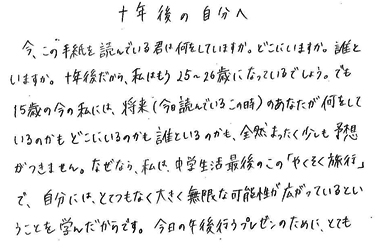 十年後の自分へ
今、この手紙を読んでいる君は何をしていますか。どこにいますか。誰と
いますか。十年後だから、私はもう25～26歳になっているでしょう。でも
15歳の今の私には、将来(今日読んでいるこの時)のあなたが何をして
いるのかもどこにいるのかも誰といるのかも、全然まったく少しも予想
がつきません。なぜなら、私は、中学生活最後のこの「やくそく旅行」
で、自分には、とてつもなく大きく無限な可能性が広がっているとい
うことを学んだからです。今日の午後行うプレゼンのために、とても